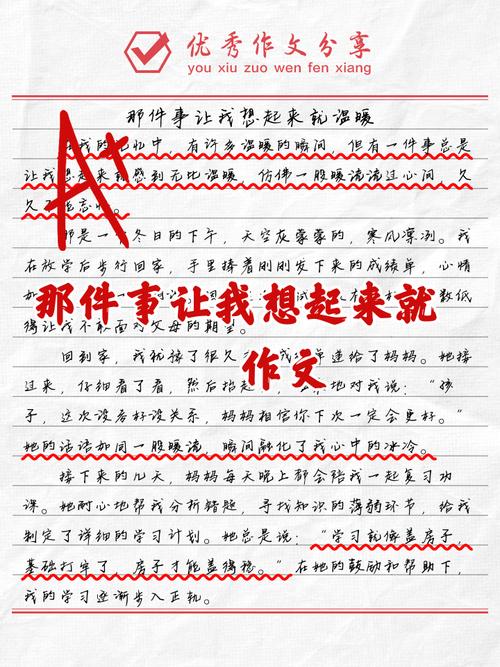 优秀作文分享
you xiu zuo wen fen xiang
那件事让我想起来就温暖
我的忆中，有许多温暖的瞬间，但有一件事总是
让我想起来就感到无比温暖，仿佛一股暖流流过心间，久
久忘怀。
那是一个冬日的下午，天空灰蒙蒙的，寒风凛冽。我
在放学后步行回家，手里捧着刚刚发下来的成绩单，心情
数低
得让我不敢面对父母的期望。
回到家，我犹豫了很久单递给了妈妈。她接
过来，仔细看了看，然后抬起地对我说：“孩
子，这次没考好没关系，妈妈相信你下次一定会更好。”
她的话语如同一股暖流，瞬间融化了我心中的冰冷。
接下来的几天，妈妈每天晚上都会陪我一起复习功
课。她耐心地帮我分析错题，寻找知识的薄弱环节，给我
制定了详细的学习计划。她总是说：“学习就像盖房子，
基础打牢了，房子才能盖得稳。”在她的鼓励和帮助下，
我的学习逐渐步入正轨。
A+
那件事让我想起来就
作文